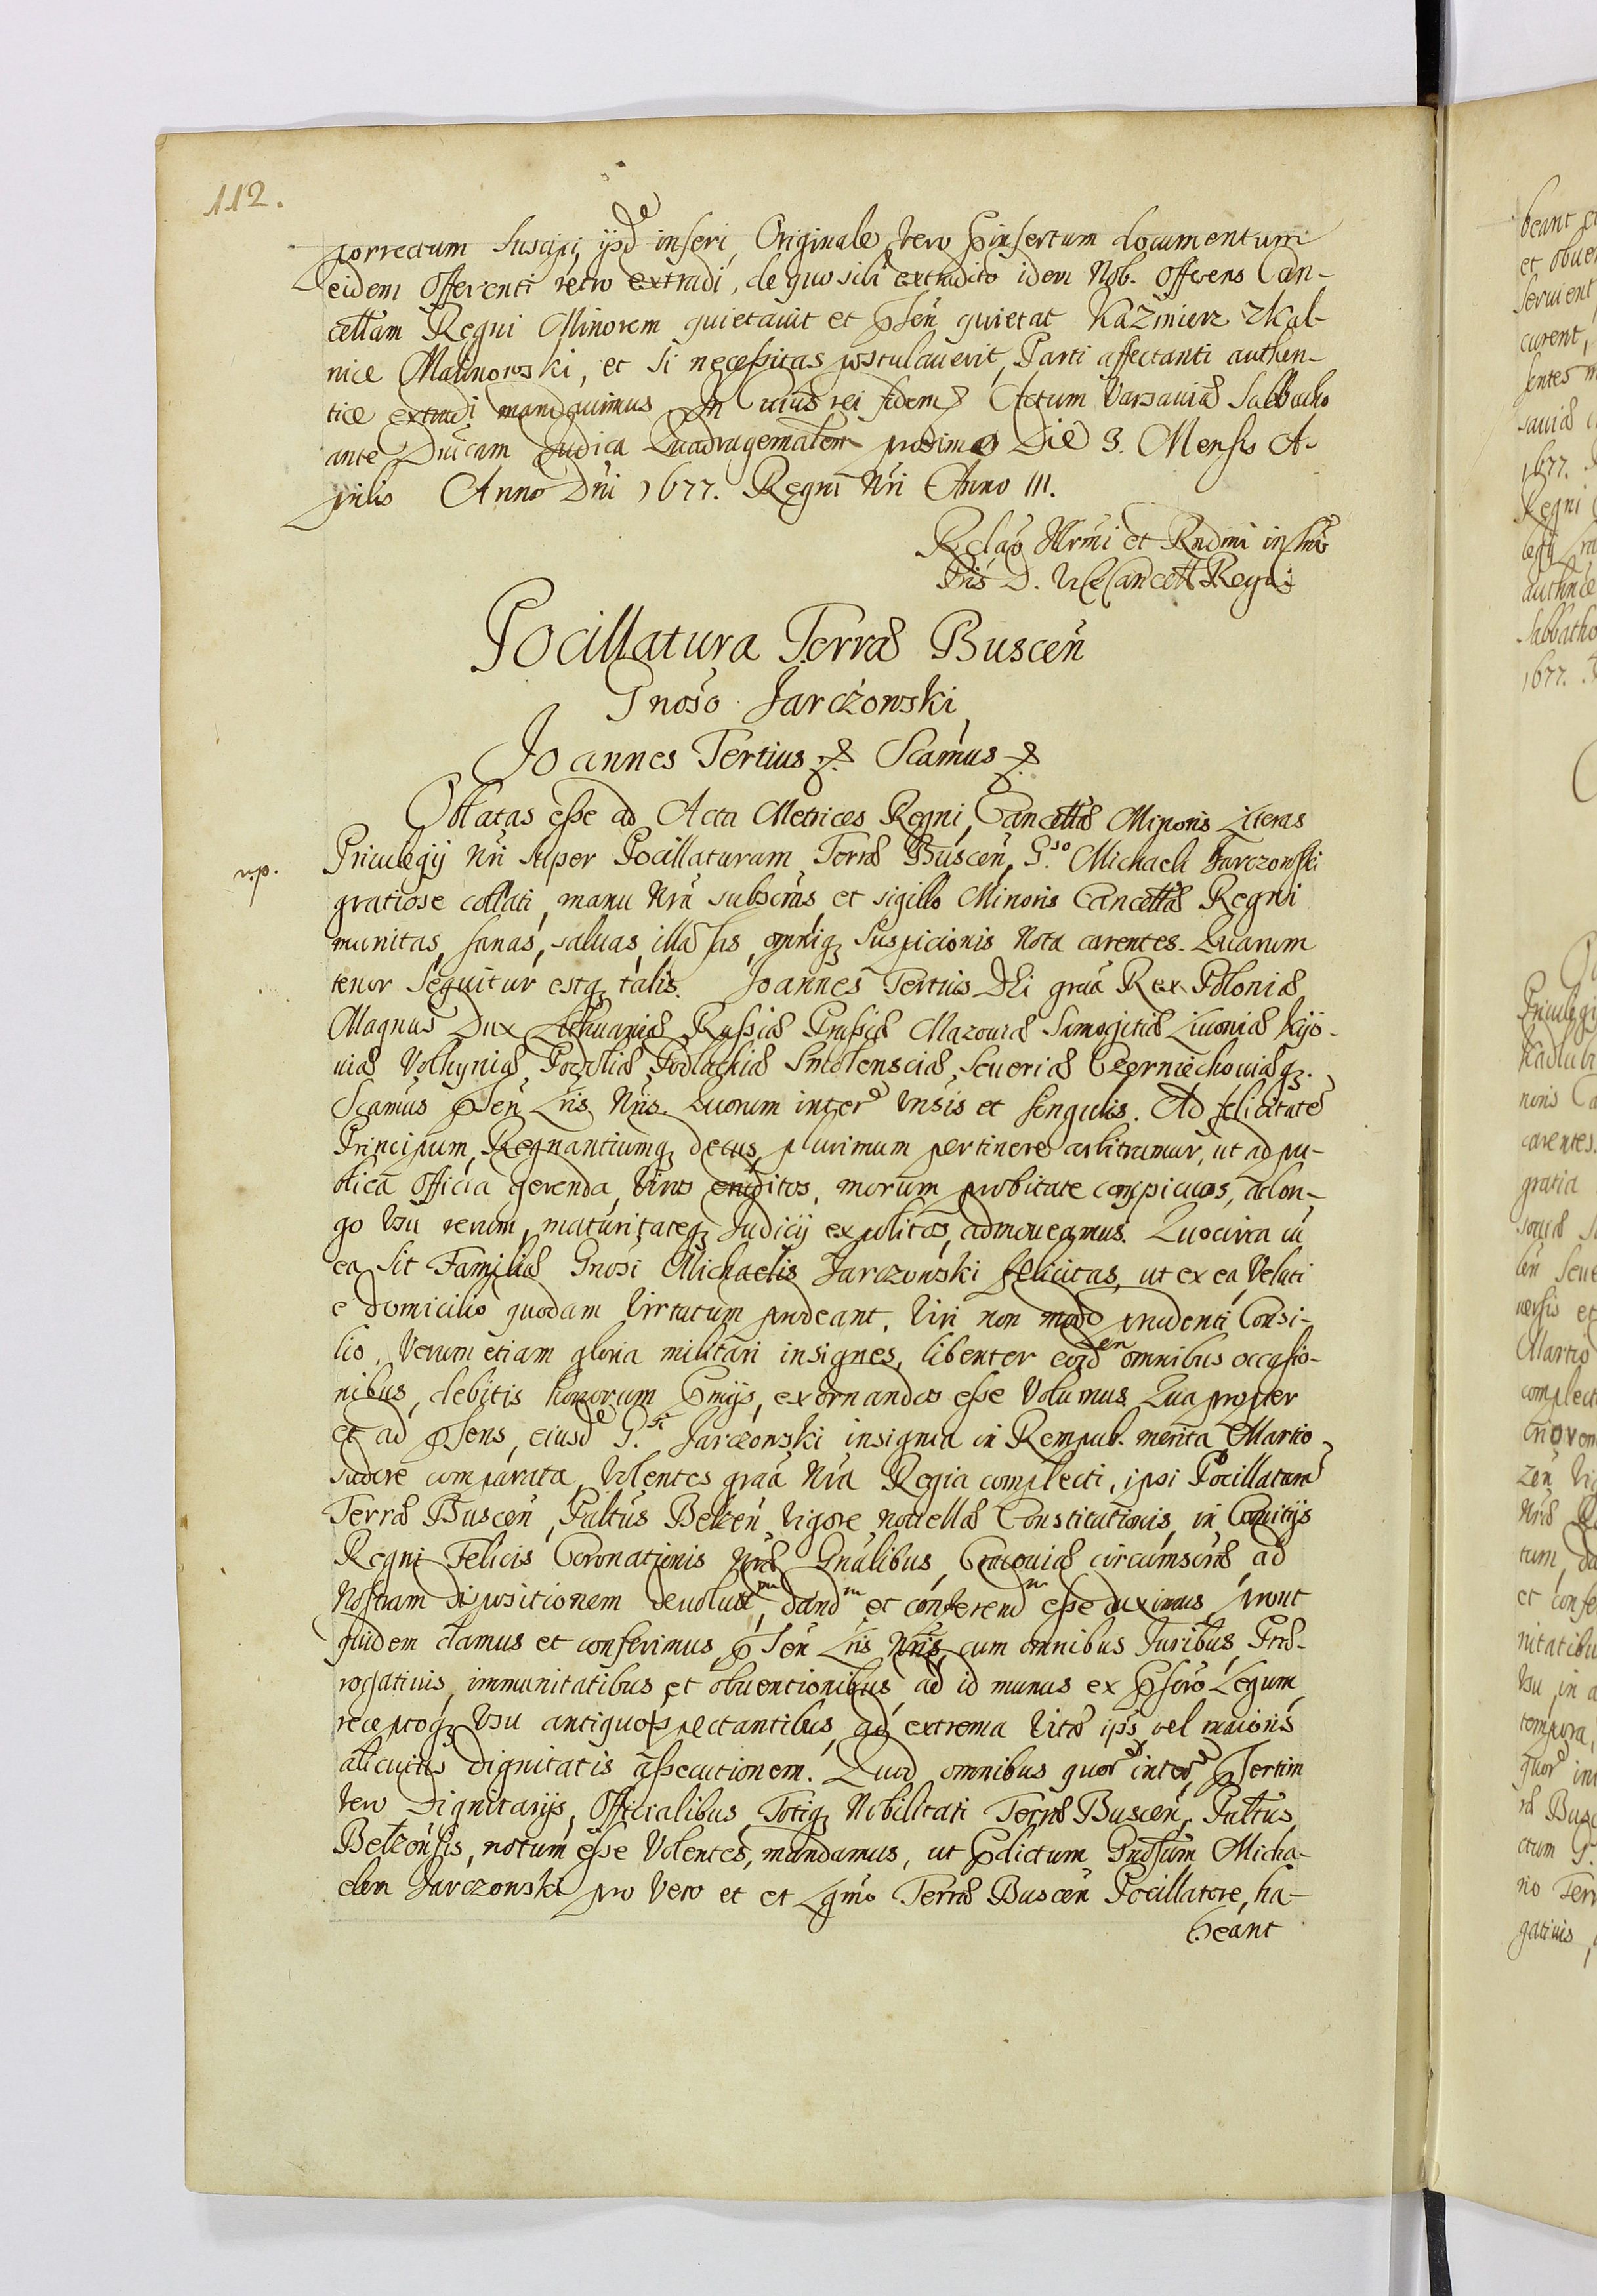 112.
porrectum suscipi, ijsde inseri, Originale vero Pinsertum documentum
eidem Offerenti retro extradi, de quo sibi extradito idem Nob. Offerens Can-
cellam Regni Minorem quietavit et pnsen quietat Kazimierz
nice Malinowski, et si necessitas postulaverit, Parti affectanti authen-
tice extradi mandavimus In cuius rei fidem Actum Varsaviæ Sabbatho
ante Dnicam Judica Quadragemalem proximo Die 3. Mensis A-
prilis Anno Dni 1677. Regni Nri Anno III.
Relao Illrmi et Rndmi in Chro
Pris D. ViceCancell Regni
Pocillatura Terræ Buscen
Gnoso Jarczowski
Joannes Tertius Scamus
Oblatas esse ad Acta Metrices Regni, Cancellæ Minoris Literas
n.p.
Privilegij Nri super Pocillaturam Terræ Buscen, G.so Michaeli Jarczowski
gratiose collati, manu Nra subscras et sigillo Minoris Cancellæ Regni
munitas, sanas, salvas, illæsas, omniq suspicionis nota carentes. Quarum
tenor sequitur estq talis. Joannes Tertius Dei graa Rex Poloniæ
Magnus Dux Lithuaniæ Russiæ Prussiæ Mazoviæ Samogitiæ Livoniæ Kijo-
viæ Volhyniæ, Podoliæ Podlachiæ Smolensciæ, Severiæ Czerniechoviæq.
Scamus pnsen Lris Nris. Quorum intere Vnsis et singulis. Ad felicitate
Principum, Regnantiumq decus, plurimum pertinere arbitramur, ut ad pu-
blica Officia gerenda Viros eruditos, morum probitate conspicuos, ac lon-
go Vsu rerum, maturitateq Judicij expolitos, admoveamus. Quocirca cu
ea sit Familiæ Gnosi Michaelis Jarczowski felicitas, ut ex ea, Veluti
e domicilio quodam Virtutum prodeant, Viri non modo prudenti Consi-
lio, Verum etiam gloria militari insignes, libenter eosdem omnibus occasio-
nibus, debitis honorum Pmijs, exornandos esse Volumus. Quapropter
et ad pnsens, eiusde G.si Jarczowski insignia in Rempub. merita Martio
sudore comparata, Volentes graa Nra Regia complecti, ipsi Pocillatura
Terræ Buscen, Paltus Belzen Vigore novellæ Constitutionis, in Comitijs
Regni Felicis Coronationis Nræ Gnalibus, Cracoviæ circumscriæ, ad
Nostram dispositionem devolutam, dandm et conferendm esse duximus, prout
quidem damus et conferimus, pnsen Lris Nris, cum omnibus Juribus, Præ-
rogativis, immunitatibus et obventionibus, ad id munus ex Psoro Legum
receptoq Vsu antiquo spectantibus, ad extrema Vitæ ipss vel maioris
alicuius dignitatis assecutionem. Quod omnibus quor intere Psertim
vero Dignitarijs, Officialibus, Totiq Nobilitati Terræ Buscen, Paltus
Belzensis, notum esse Volentes, mandamus, ut Pdictum Gnosum Micha-
elem Jarczowski pro Vero et et Lgmo Terræ Buscen Pocillatore, ha-
beant